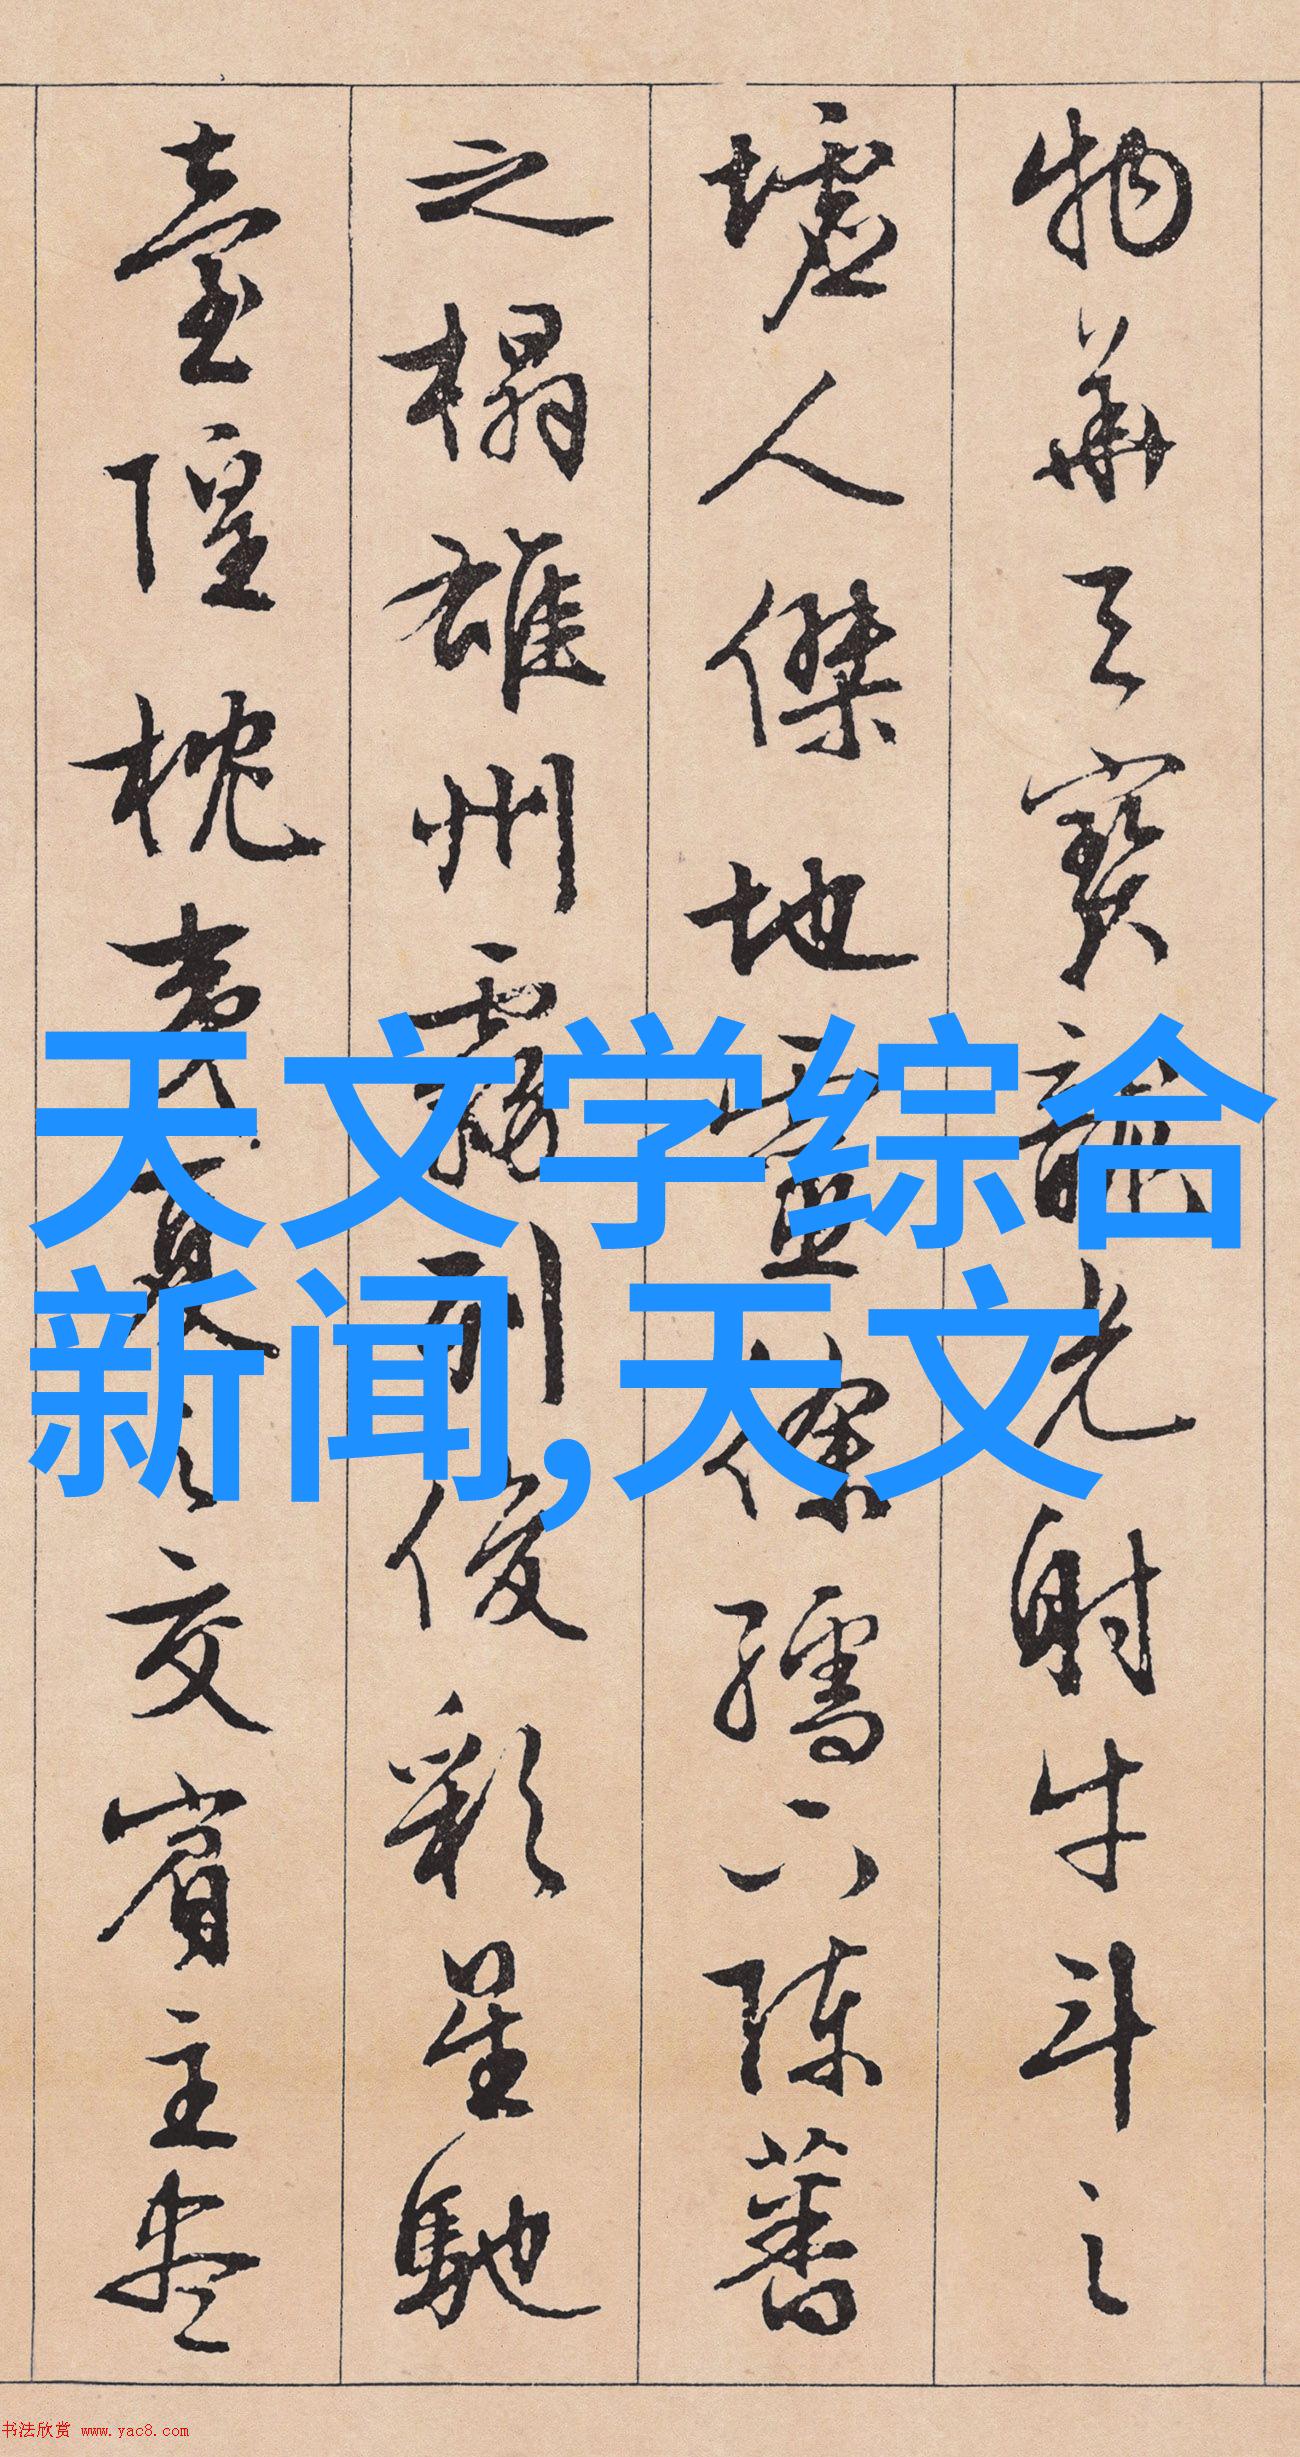 物華天寶龍光射牛斗之
墟人傑地靈徐孺下陳蕃
之榻雄州霧列俊彩星馳
臺隍枕夷夏之交賓主盡
天文学综合
新闻,天文
书法欣赏 www.yac8.com